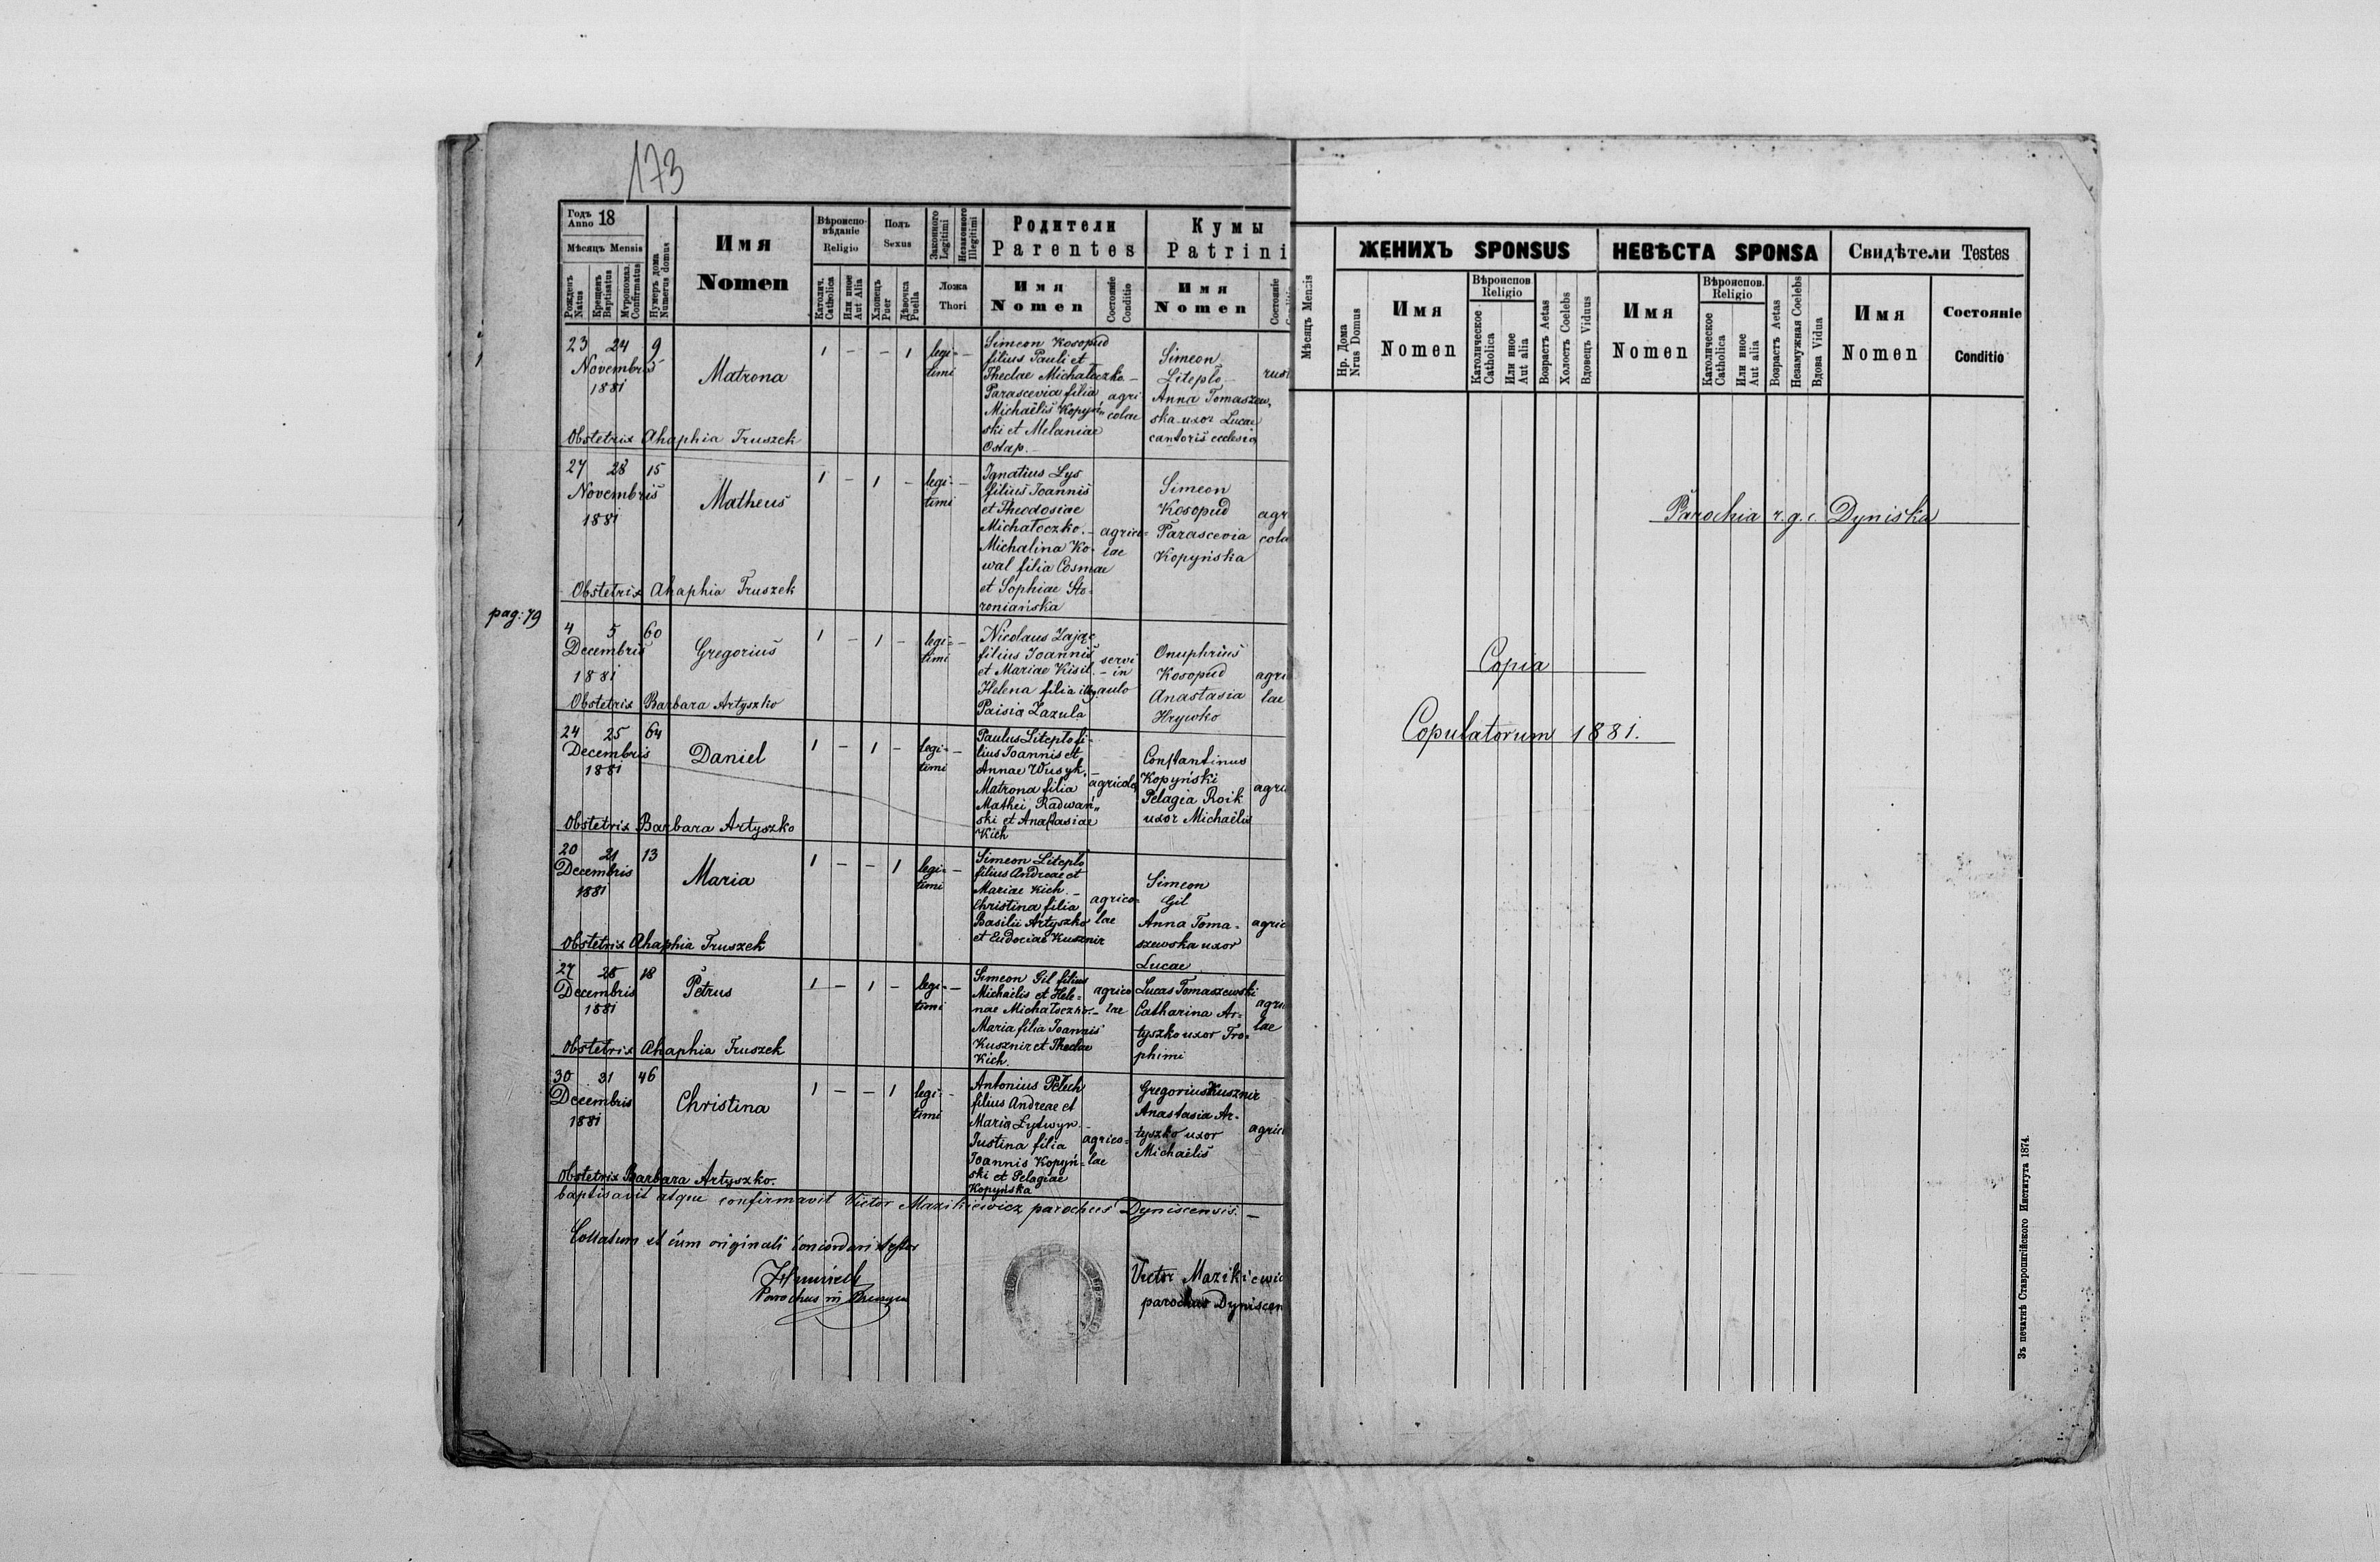 173
Годъ Anno 18
Мѣсяцъ Mensis
Рожденъ Natus
Крещенъ Baptisatus
Муропомаз. Confirmatus
Нумеръ дома Numerus domus
Имя
Nomen
Вѣроисповѣданіе
Religio
Католич. Catholica
Или иное Aut Alia
Полъ
Sexus
Хлопецъ Puer
Дѣвочка Puella
Законного Legitimi
Незаконного Illegitimi
Ложа
Thori
Родители
Parentes
Имя
Nomen
Состояніе Conditio
Кумы
Patrini
Имя
Nomen
Состояніе
23 24 9
Novembris
1881
Matrona
1 - - 1
legi= -
timi
Simeon Kosopud
filius Pauli et
Theclae Michałoczko. -
Parascevia filia
Michaëlis Kopyń„
ski et Melaniae
Ostap.
agri
colae
Simeon
Liteplo
Anna Tomaszew„
ska uxor Lucae
cantoris ecclesia
rus
Obstetrix Ahaphia Truszek
27 28 15
Novembris
1881
Matheus
1 - 1 -
legi= -
timi
Ignatius Lys
filius Joannis
et Theodosiae
Michałoczko. -
Michalina Ko-
wal filia Cosmae
et Sophiae Sto-
roniańska
agrico=
lae
Simeon
Kosopud
Parascevia
Kopyńska
agr
cola
Obstetrix Ahaphia Truszek
pag: 79
4 5 60
Decembris
1881
Gregorius
1 - 1 -
legi= -
timi
Nicolaus Zając
filius Joannis
et Mariae Kisil. -
Helena filia illeg.
Paisia Zazula
servi
in
aulo
Onuphrius
Kosopud
Anastasia
Hrywko
agri
lae
Obstetrix Barbara Artyszko
24 25 64
Decembris
1881
Daniel
1 - 1 -
legi= -
timi
Paulus Liteplo fi-
lius Joannis et
Annae Wusyk. -
Matrona filia
Mathei Radwań„
ski et Anastasiae
Kich
agricolae
Constantinus
Kopyński
Pelagia Roik
uxor Michaëlis
agri
Obstetrix Barbara Artyszko
20 21 13
Decembris
1881
Maria
1 - - 1
legi= -
timi
Simeon Liteplo
filius Andreae et
Mariae Kich. -
Christina filia
Basilii Artyszko
et Eudociae Kusznir
agrico=
lae
Simeon
Gil
Anna Toma-
szewska uxor
Lucae
agric
Obstetrix Ahaphia Truszek
27 28 18
Decembris
1881
Petrus
1 - 1 -
legi= -
timi
Simeon Gil filius
Michaëlis et Hele=
nae Michałoczko. -
Maria filia Joannis
Kusznir et Theclae
Kich.
agrico
lae
Lucas Tomaszewski
Catharina Ar-
tyszko uxor Tro-
phimi
agri
lae
Obstetrix Ahaphia Truszek
30 31 46
Decembris
1881
Christina
1 - - 1
legi= -
timi
Antonius Pelech
filius Andreae et
Maria Lytwyn. -
Justina filia
Joannis Kopyń-
ski et Pelagiae
Kopyńska
agrico=
lae
Gregorius Kusznir
Anastasia Ar-
tyszko uxor
Michaëlis
agric
Obstetrix Barbara Artyszko.
baptisavit atque confirmavit Victor Mazikiewicz parochus Dyniscensis. -
Collatum et cum originali concordari testor
Parochus in
Victor Mazikiewic
parochus Dyniscen
Мѣсяцъ Mensis
Нр. Дома Nrus Domus
ЖЕНИХЪ SPONSUS
Имя
Nomen
Вѣроиспов. Religio
Католическое Catholica
Или иное Aut alia
Возрастъ Aetas
Холостъ Coelebs
Вдовецъ Viduus
НЕВѢСТА SPONSA
Имя
Nomen
Вѣроиспов. Religio
Католическое Catholica
Или иное Aut alia
Возрастъ Aetas
Незамужная Coelebs
Вдова Vidua
Свидѣтели Testes
Имя
Nomen
Состояніе
Conditio
Parochia r. g. c. Dyniska
Copia
Copulatorum 1881.
Зъ печатнѣ Ставропигійского Института 1874.